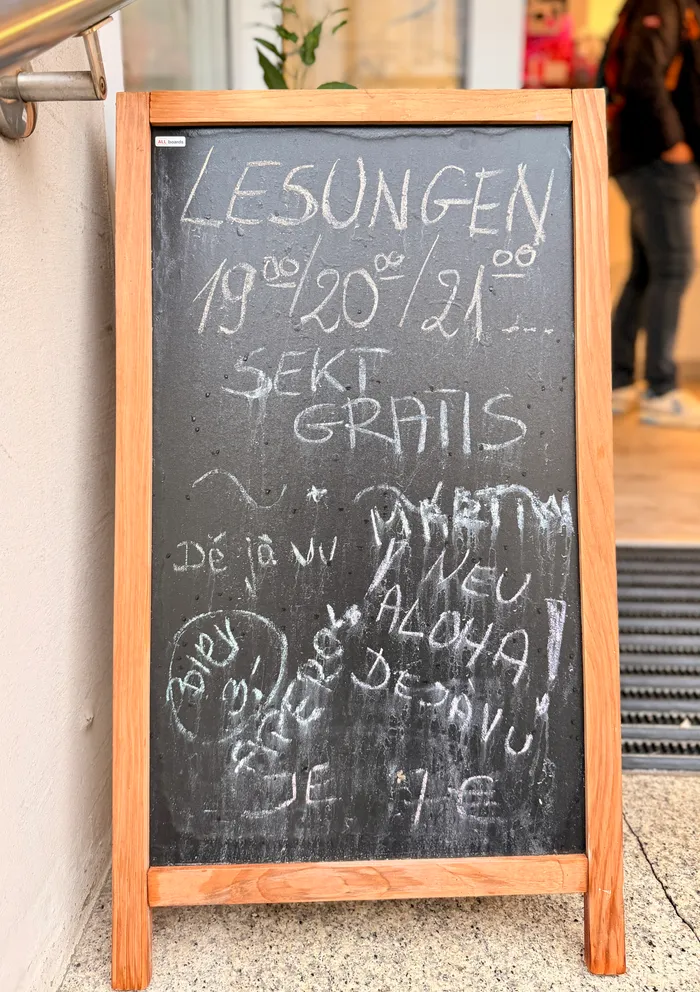 ALL boards
LESUNGEN
19⁰⁰/20⁰⁰/21⁰⁰ ...
SEKT
GRATIS
Déjà vu
MARTINI
NEU
ALOHA!
DEJAVU!
BIER
3,
APEROL
JE 7 €